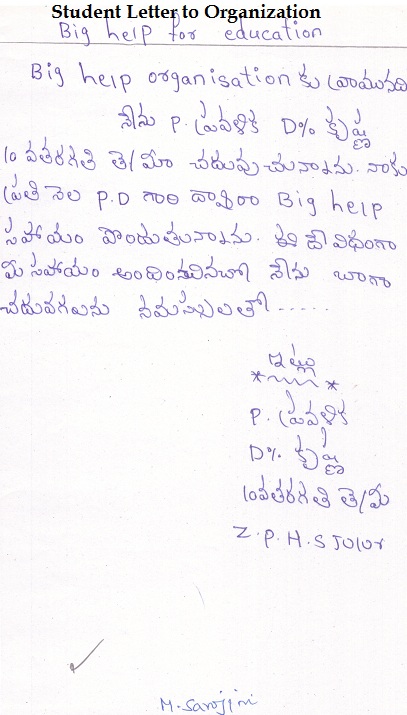 Student Letter to Organization
Big help for education
Big help organisation కు వ్రాయునది
నేను P. ప్రవళిక D% కృష్ణ
10 వతరగతి తె/మీ చదువు చున్నాను. నాకు
ప్రతి నెల P.D గారి ద్వారా Big help
సహాయం పొందుతున్నాను. ఈ విధంగా
మీ సహాయం అందించినచో నేను బాగా
చదువగలను నమస్సులతో ......
ఇట్లు
P. ప్రవళిక
D% కృష్ణ
10వతరగతి తె/మీ
Z.P.H.S
M. Sarojini